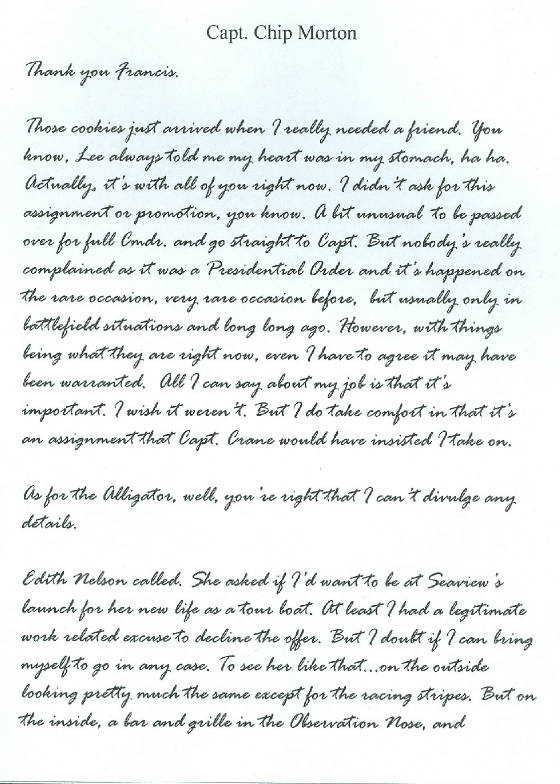 Capt. Chip Morton
Thank you Francis.
Those cookies just arrived when I really needed a friend. You
know, Lee always told me my heart was in my stomach, ha ha.
Actually, it's with all of you right now. I didn't ask for this
assignment or promotion, you know. A bit unusual to be passed
over for full Cmdr. and go straight to Capt. But nobody's really
complained as it was a Presidential Order and it's happened on
the rare occasion, very rare occasion before, but usually only in
battlefield situations and long long ago. However, with things
being what they are right now, even I have to agree it may have
been warranted. All I can say about my job is that it's
important. I wish it weren't. But I do take comfort in that it's
an assignment that Capt. Crane would have insisted I take on.
As for the Alligator, well, you're right that I can't divulge any
details.
Edith Nelson called. She asked if I'd want to be at Seaview's
launch for her new life as a tour boat. At least I had a legitimate
work related excuse to decline the offer. But I doubt if I can bring
myself to go in any case. To see her like that...on the outside
looking pretty much the same except for the racing stripes. But on
the inside, a bar and grille in the Observation Nose, and